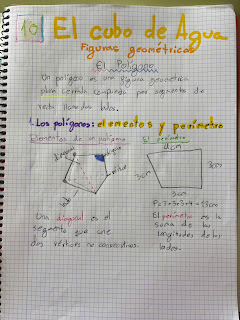 10 El cubo de Agua
Figuras geométricas
El Polígono
Un polígono es una figura geométrica
plana cerrada compuesta por segmentos de
recta llamados lados.
1. Los polígonos: elementos y perímetro
Elementos de un polígono
diagonal
vértice
lado
Una diagonal es el
segmento que une
dos vértices no consecutivos.
El perímetro
4cm
3cm
3cm
3cm
El perímetro es la
suma de las
longitudes de los
lados.